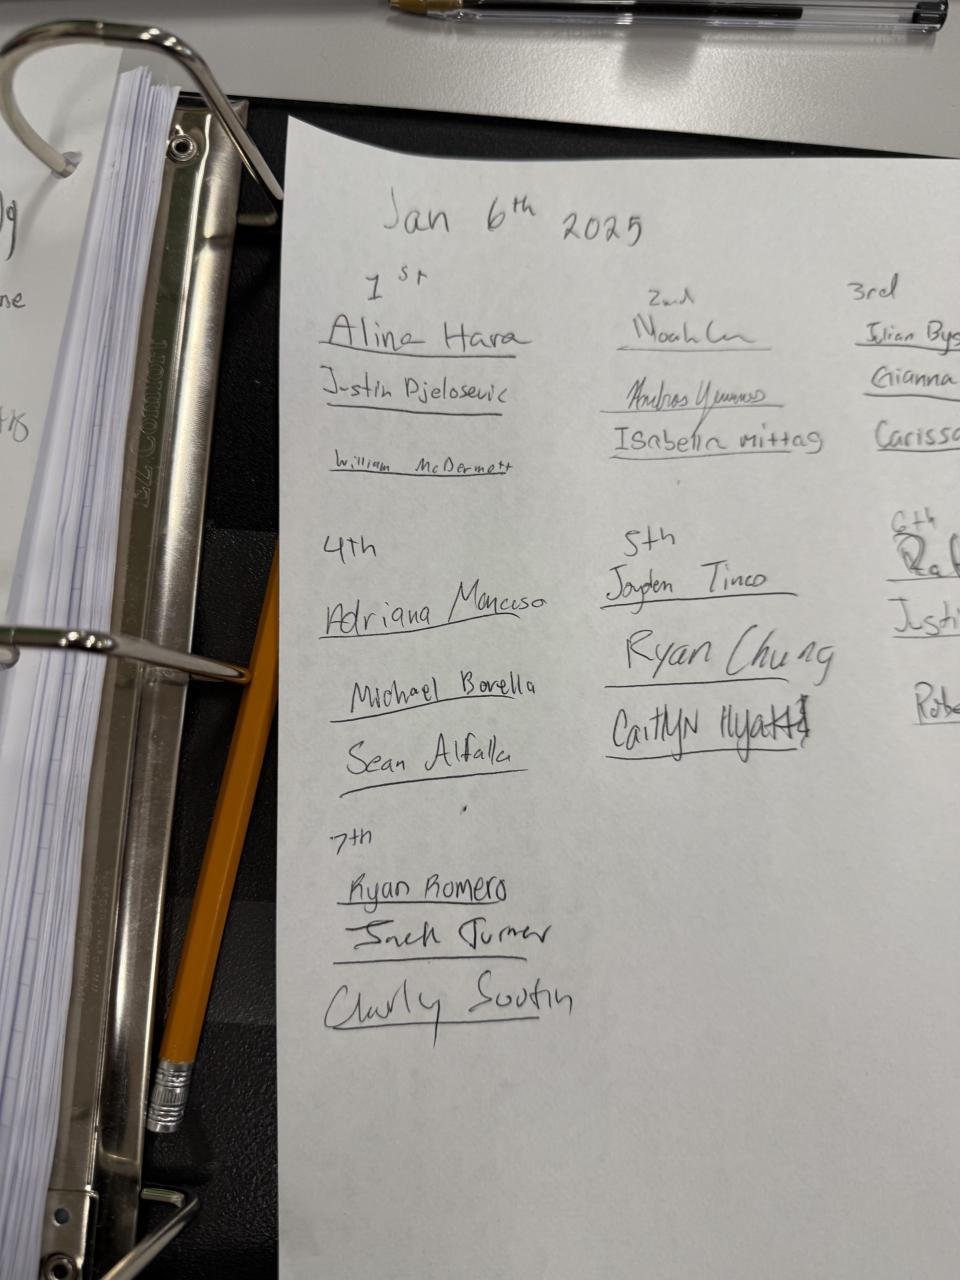 Jan 6th 2025
1st
Aline Hara
Justin Djelosevic
William McDermott
2nd
Noah
Ambros
Isabella Mittag
3rd
Julian
Gianna
Carissa
4th
Adriana Mancuso
Michael Borella
Sean Alfalla
5th
Jayden Tinco
Ryan Chung
Caitlyn Hyatt
6th
7th
Ryan Romero
Jack Turner
EZ Comfort